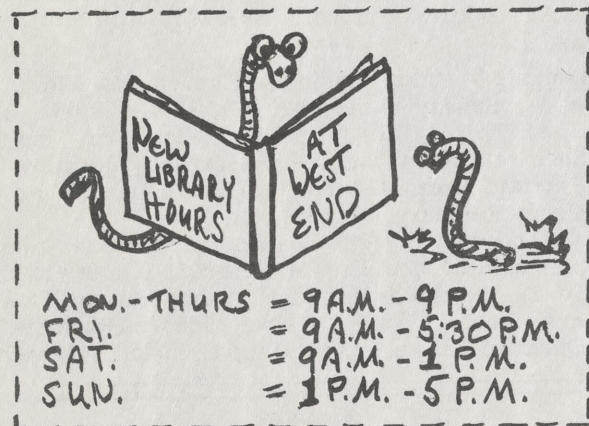 NEW
LIBRARY
HOURS
AT
WEST
END
MON.-THURS = 9 A.M. - 9 P.M.
FRI. = 9 A.M. - 5:30 P.M.
SAT. = 9 A.M. - 1 P.M.
SUN. = 1 P.M. - 5 P.M.